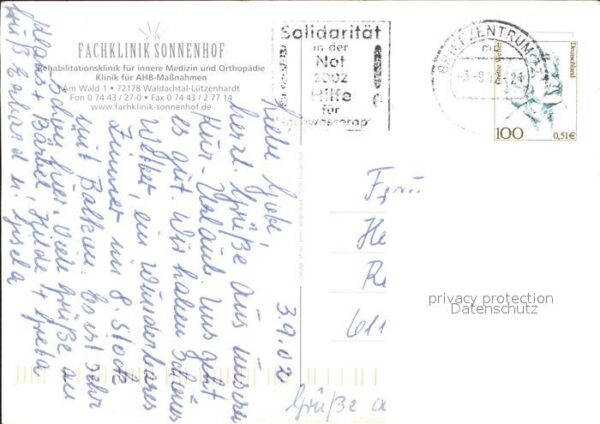 FACHKLINIK SONNENHOF
Rehabilitationsklinik für innere Medizin und Orthopädie
Klinik für AHB-Maßnahmen
Am Wald 1 • 72178 Waldachtal-Lützenhardt
Fon 0 74 43 / 27-0 • Fax 0 74 43 / 2 77 14
www.fachklinik-sonnenhof.de
Solidarität
in der
Not
2002
Hilfe
für
BRIEFZENTRUM
Deutschland
100
0,51€
3.9.02
Liebe
herzl. Grüße aus unserem
Kur-Urlaub. Uns geht
es gut. Wir haben schönes
Wetter, ein wunderbares
Zimmer im 8. Stock
mit Balkon. Es ist sehr
schön hier. Viele Grüße an
Klaus + Bärbel, Hilde + Greta
Gruß Erhard u. Gisela
Frau
He
Re
611
Grüße a
privacy protection
Datenschutz